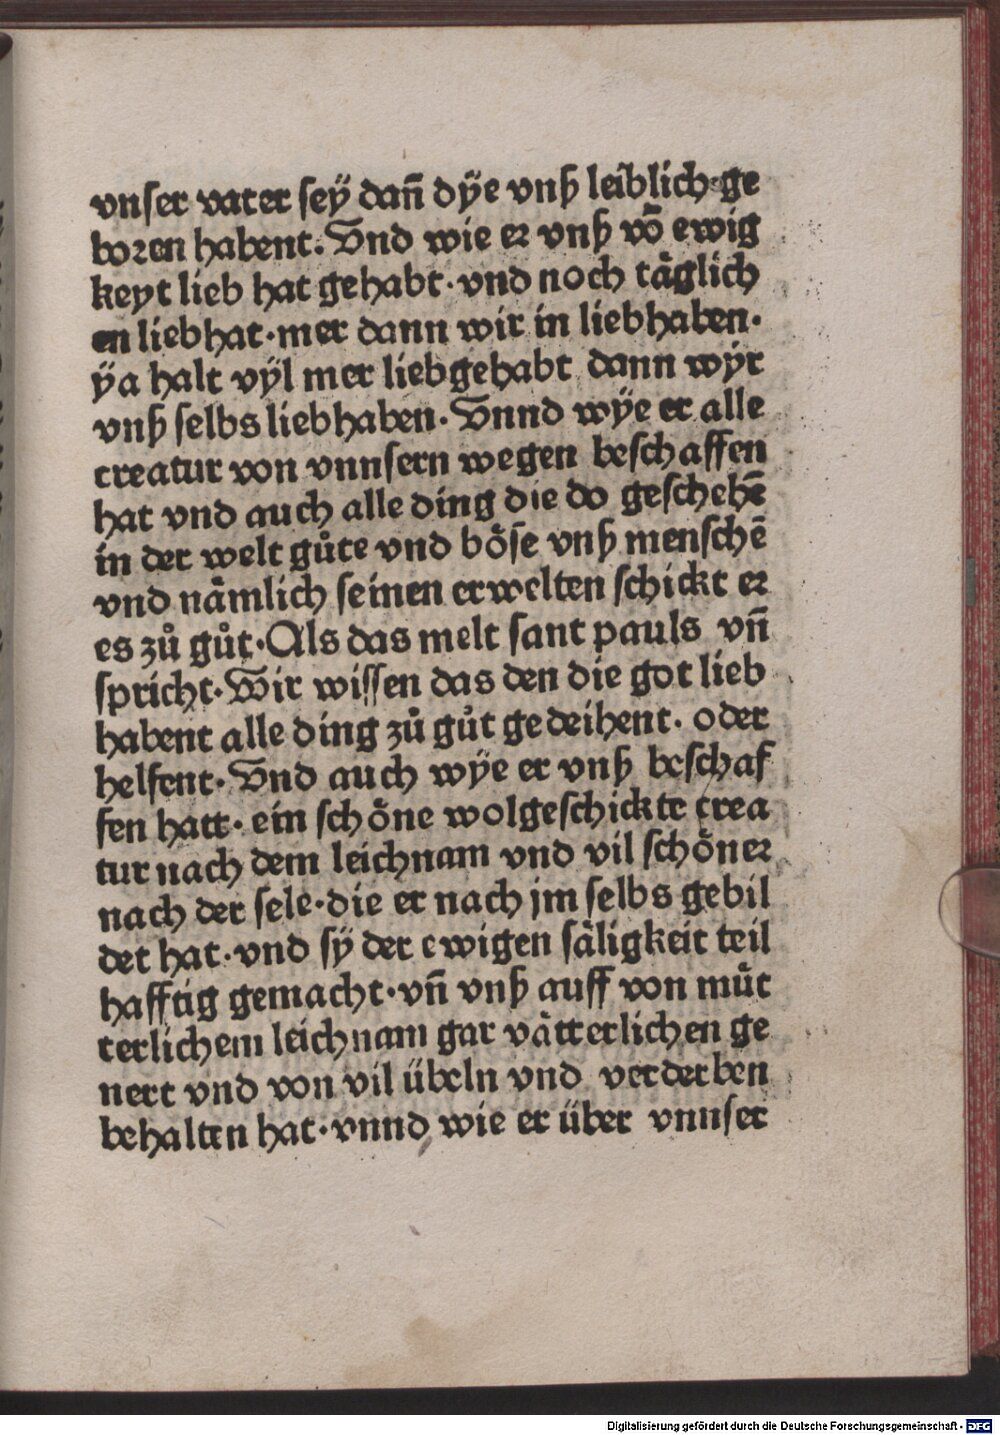 vnser vater sey̋ dañ dy̋e vnß leiblich ge
boren habent. Vnd wie er vnß võ ewig
keyt lieb hat gehabt· vnd noch tåglich
en lieb hat· mer dann wir in lieb haben·
y̋a halt vy̋l mer lieb gehabt dann wy̋r
vnß selbs lieb haben· Vnnd wy̋e er alle
creatur von vnnsern wegen beschaffen
hat vnd auch alle ding die do geschehẽ
in der welt gůte vnd böse vnß menschẽ
vnd nåmlich seinen erwelten schickt er
es zů gůt· Als das melt sant pauls vñ
spricht· Wir wissen das den die got lieb
habent alle ding zů gůt gedeihent· oder
helfent· Vnd auch wy̋e er vnß beschaf
fen hatt· ein schöne wolgeschickte crea
tur nach dem leichnam vnd vil schöner
nach der sele· die er nach jm selbs gebil
det hat· vnd sy̋ der ewigen såligkeit teil
hafftig gemacht· vñ vnß auff von můt
terlichem leichnam gar våtterlichen ge
nert vnd von vil übeln vnd verderben
behalten hat· vnnd wie er über vnnser
Digitalisierung gefördert durch die Deutsche Forschungsgemeinschaft - DFG